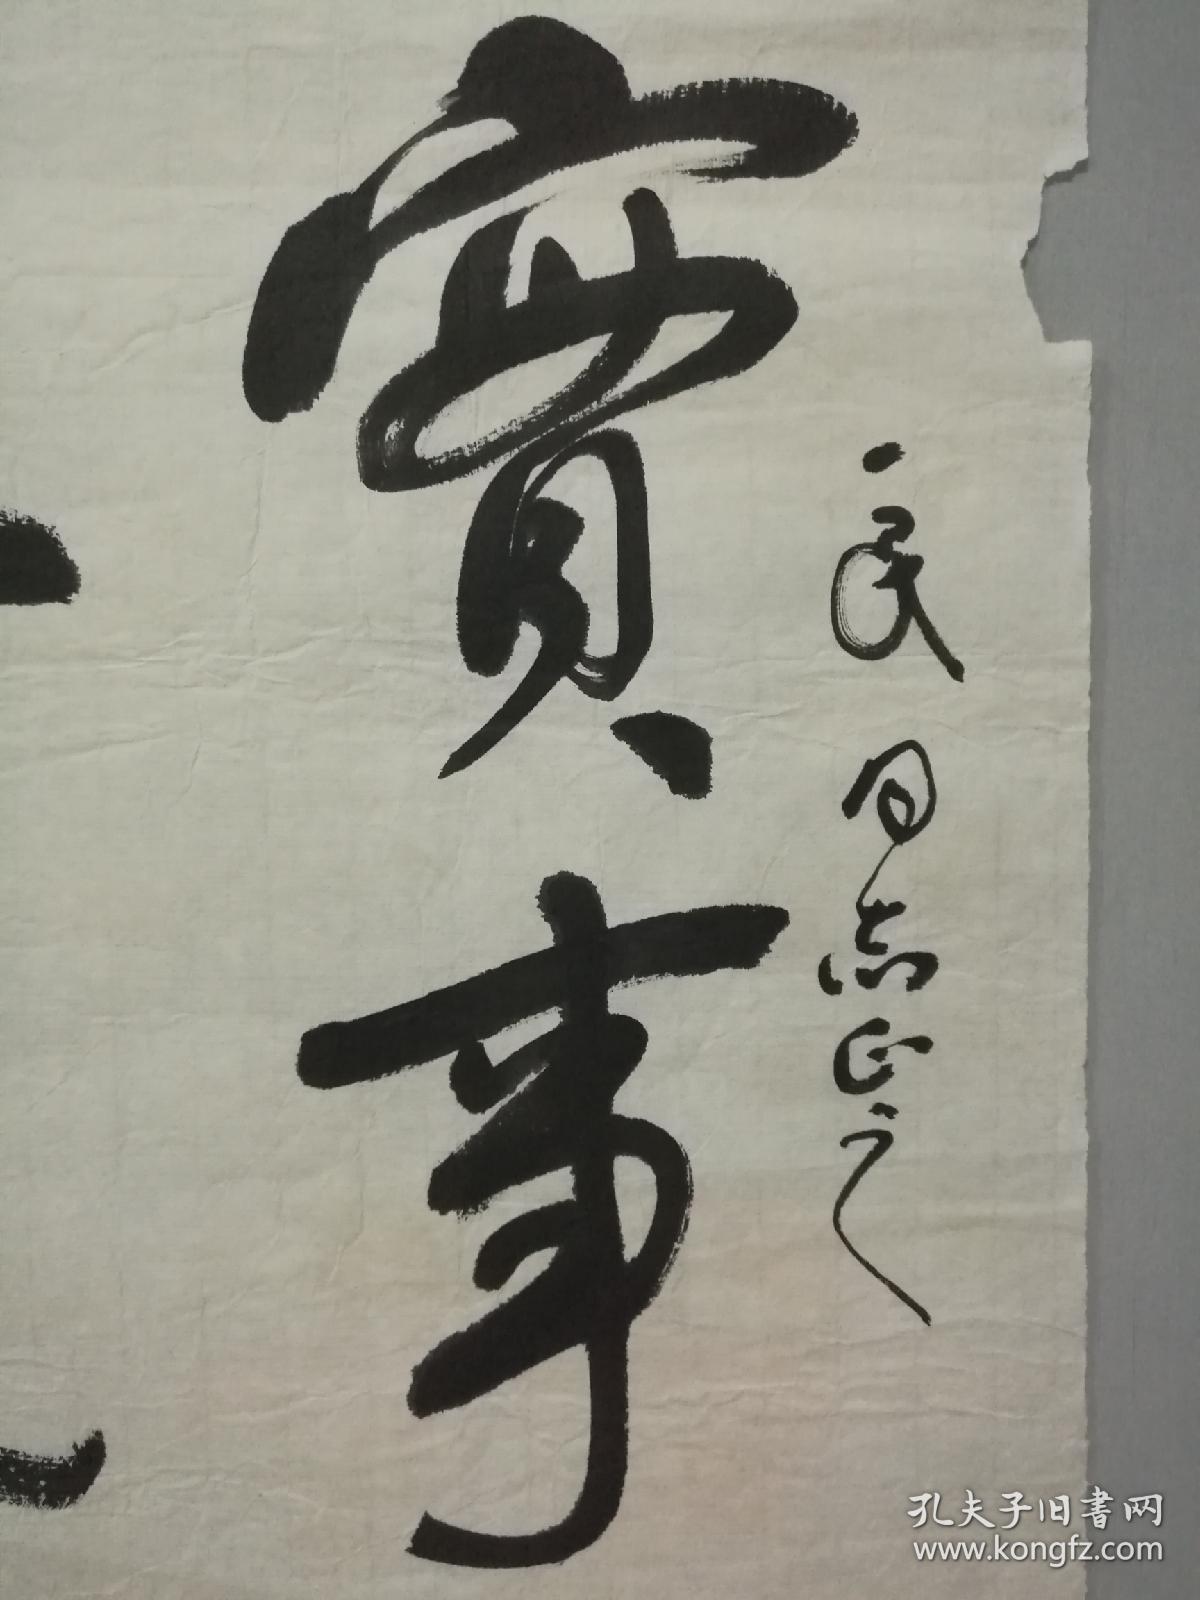 一民同志正之
實事
孔夫子旧書网
www.kongfz.com